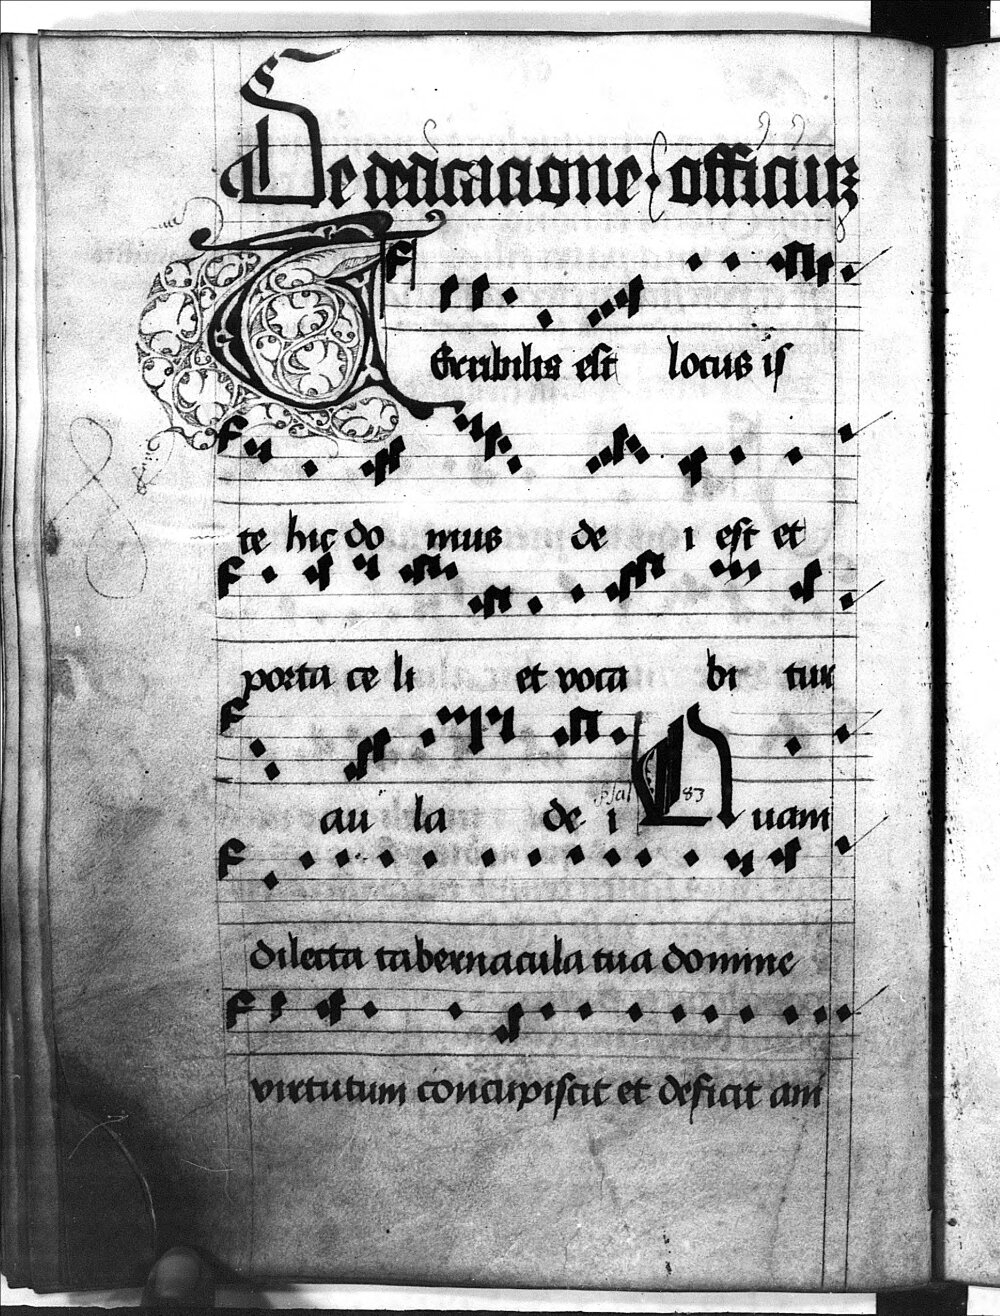 De dedicacione officiuz
Terribilis est locus is
te hic do mus de i est et
porta ce li et voca bi tur
au la de i psal 83 Quam
dilecta tabernacula tua domine
virtutum concupiscit et deficit ani